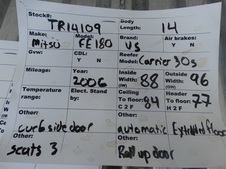 Stock#: TR14109 Body Length: 14
Make: Mitsu Model: FE180 Brand: US Air brakes? Y N
Gvw: CDL: Y N Reefer Model: Carrier 30s
Mileage: Year: 2006 Inside Width: (W) 88 Outside Width: (W) 96
Temperature range: Elect. Stand by: Ceiling To floor: H 2 F 84 Header To floor: H 2 F 77
Other: curb side door Other: automatic Other: Extruded floor
Other: seats 3 Other: Roll up door